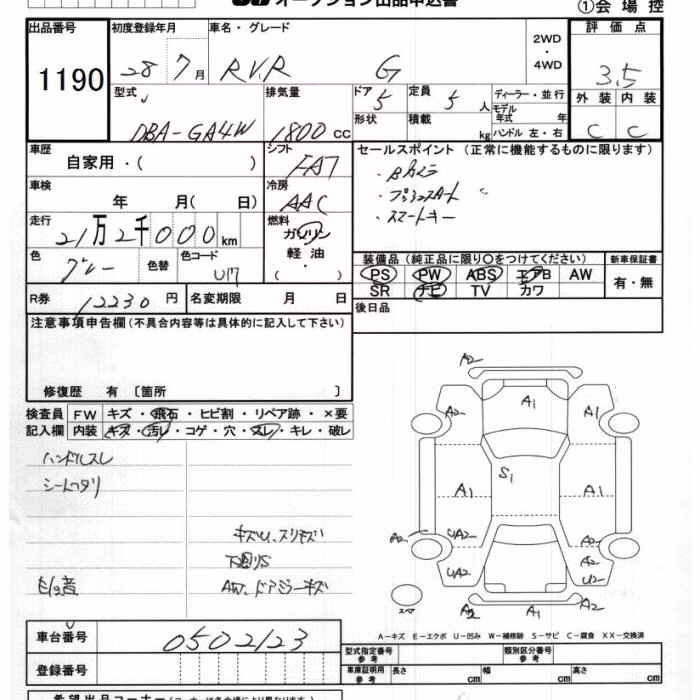 オークション出品申込書
①会場控
出品番号
1190
初度登録年月
28年 7月
車名・グレード
RVR G
2WD
・
4WD
評価点
3.5
外装 内装
C C
型式
DBA-GA4W
排気量
1800 cc
ドア 5
定員 5人
形状
積載 kg
ディーラー・並行
モデル年式 年
ハンドル 左・右
車歴
自家用・( )
シフト
FAT
セールスポイント(正常に機能するものに限ります)
・Bカメラ
・プッシュスタート
・スマートキー
車検
年 月( 日)
冷房
AAC
走行
21万2千000km
燃料
ガソリン
軽油
・( )
色
グレー
色替
色コード
U17
装備品(純正品に限り○をつけてください)
PS PW ABS エアB AW
SR ナビ TV カワ
新車保証書
有・無
R券
12230円
名変期限 月 日
後日品
注意事項申告欄(不具合内容等は具体的に記入して下さい)
修復歴 有〔箇所 〕
検査員記入欄
FW キズ・飛石・ヒビ割・リペア跡・×要
内装 キズ・汚レ・コゲ・穴・スレ・キレ・破レ
ハンドルスレ
シートヘタリ
キズU、スリキズ
下廻りS
AW、ドアミラーキズ
A2
A2 A1 A1
S1
A1 A1
A2 UA2 A2
UA2 A2
U2
スペア
A2 A1 A2
A-キズ E-エクボ U-凹み W-補修跡 S-サビ C-腐食 XX-交換済
車台番号
0502123
登録番号
型式指定番号 参考
類別区分番号 参考
車庫証明用 参考
長さ cm 幅 cm 高さ cm
希望出品コーナー